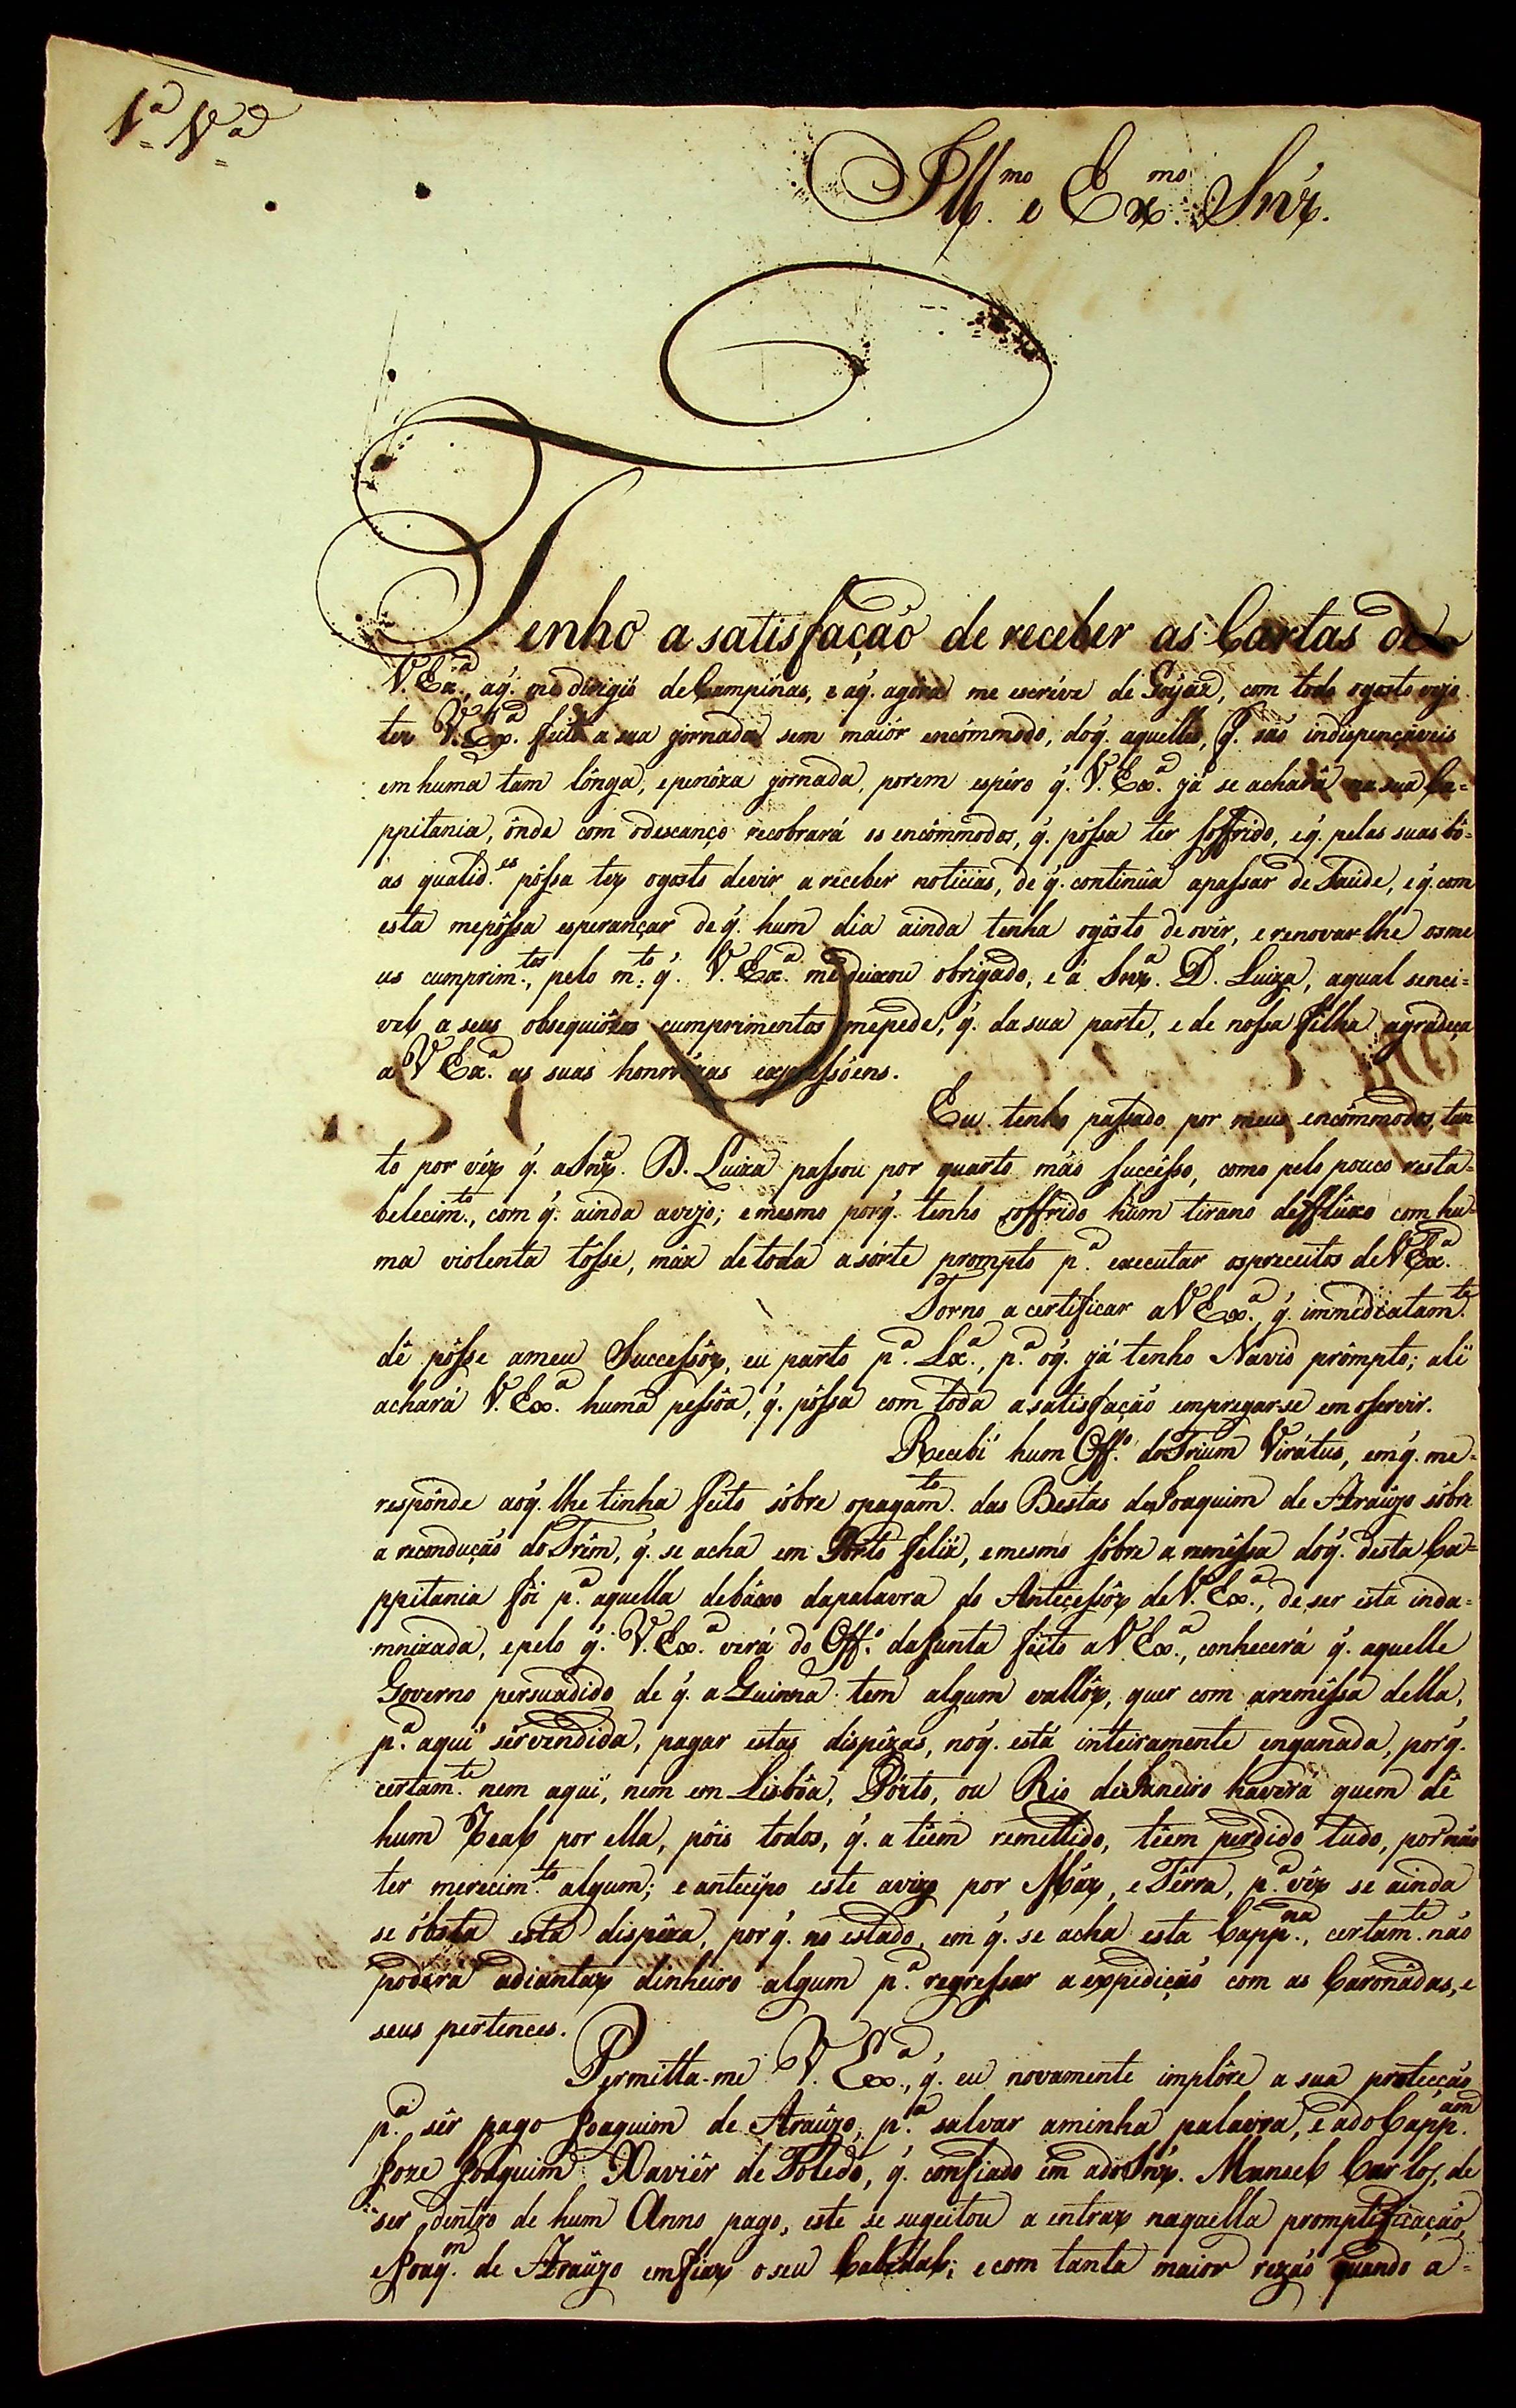 1.ª V.ª
Ill.mo e Ex.mo Snr.
Tenho a satisfação de receber as Cartas de
V. Ex.ª, aq̃. me dirigiô de Campinas, e aq̃. agora me escréve de Goyaz, com todo ogosto vejo
ter V. Ex.ª feito a sua jornada sem maiór encómmodo, doq̃. aquelles, q̃. são indispençáveis
em huma tam lônga, epenôza jornada, porem espéro q̃. V. Ex.ª já se achará na sua Ca=
ppitania, ônde com odescanço recobrará os encômmodos, q̃. póssa ter soffrido, eq̃. pelas suas bô=
as qualid.es pôssa ter ogosto devir a receber noticias, de q̃. continûa apassar de Saûde, eq̃. com
esta mepôssa esperançar de q̃. hum dia ainda tenha ogôsto de ovir, e renovar lhe osme
us cumprim.tos, pelo m.to q̃. V. Ex.ª medeixou obrigado, e á Snr.ª D. Luiza, aqual senci=
vel a seus obsequiôzos cumprimentos mepede, q̃. dasua parte, e de nossa filha agradeça
a V Ex.ª as suas honrrózas expressôens.
Eu tenho passado por meus encômmodos, tan
to por vêr q̃. aSnr.ª D. Luiza passou por quarto máo succêsso, como pelo pouco resta=
belecim.to, com q̃. ainda avejo; emesmo porq̃. tenho soffrido hûm tirano deffluxo com hu=
ma violenta tósse, máx detoda asórte prompto p.ª executar ospreceitos de V Ex.ª
Torno acertificar aV Ex.ª, q̃. immediatam.te
dê pósse ameu Successôr, eu parto p.ª Lx.ª, p.ª oq̃. já tenho Navio prômpto; alî
achará V. Ex.ª huma pessôa, q̃. póssa com toda asatisfação empregar-se em oservir.
Recebî hum Off.º do Trium Virátus, emq̃. me=
respônde aoq̃. lhe tinha feito sôbre opagam.to das Bestas de Joaquim de Araújo sôbre
a recondução do Trêm, q̃. se acha em Pôrto feliz, emesmo sôbre a remêssa dóq̃. desta Ca=
ppitania fôi p.ª aquella debáxo dapalavra do Anteçessôr de V. Ex.ª, de ser esta inda=
mnizada, epelo q̃. V. Ex.ª verá do Off.º da Junta feito aV Ex.ª, conhecerá q̃. aquelle
Governo persuadido de q̃. a Guinna tem algum vallôr, quer com aremêssa della,
p.ª aquî servendida, pagar estas dispêzas, noq̃. está inteiramente enganada, porq̃.
certam.te nem aquî, nem em Lisbôa, Pôrto, ou Rio de Janeiro haverá quem dê
hum Real por ella, pôis todos, q̃. a têem remettido, têem perdido tudo, por não
ter merecim.to algum; e antecipo este avizo por Mar, e Térra, p.ª vêr se ainda
se óbsta esta dispêza, porq̃. no estado, em q̃. se acha esta Capp.na, certam.te não
poderá adiantar dinheiro algum p.ª regressar a expidicão com as Caronádas, e
seus pertences.
Permitta-me V. Ex.ª, q̃. eu novamente implôre a sua protecção
p.ª sêr pago Joaquim de Araújo, p.ª salvar aminha palavra, e ado Capp.am
Joze Joaquim Xaviér de Toledo, q̃. confiado em adoSnr. Manoel Carlos, de
ser dentro de hum Anno pago, este se sugeitou a entrar naquella promptificação,
eJoaq.m de Araújo emfiar oseu Cabedal; ecom tanta maior rezão quando a=